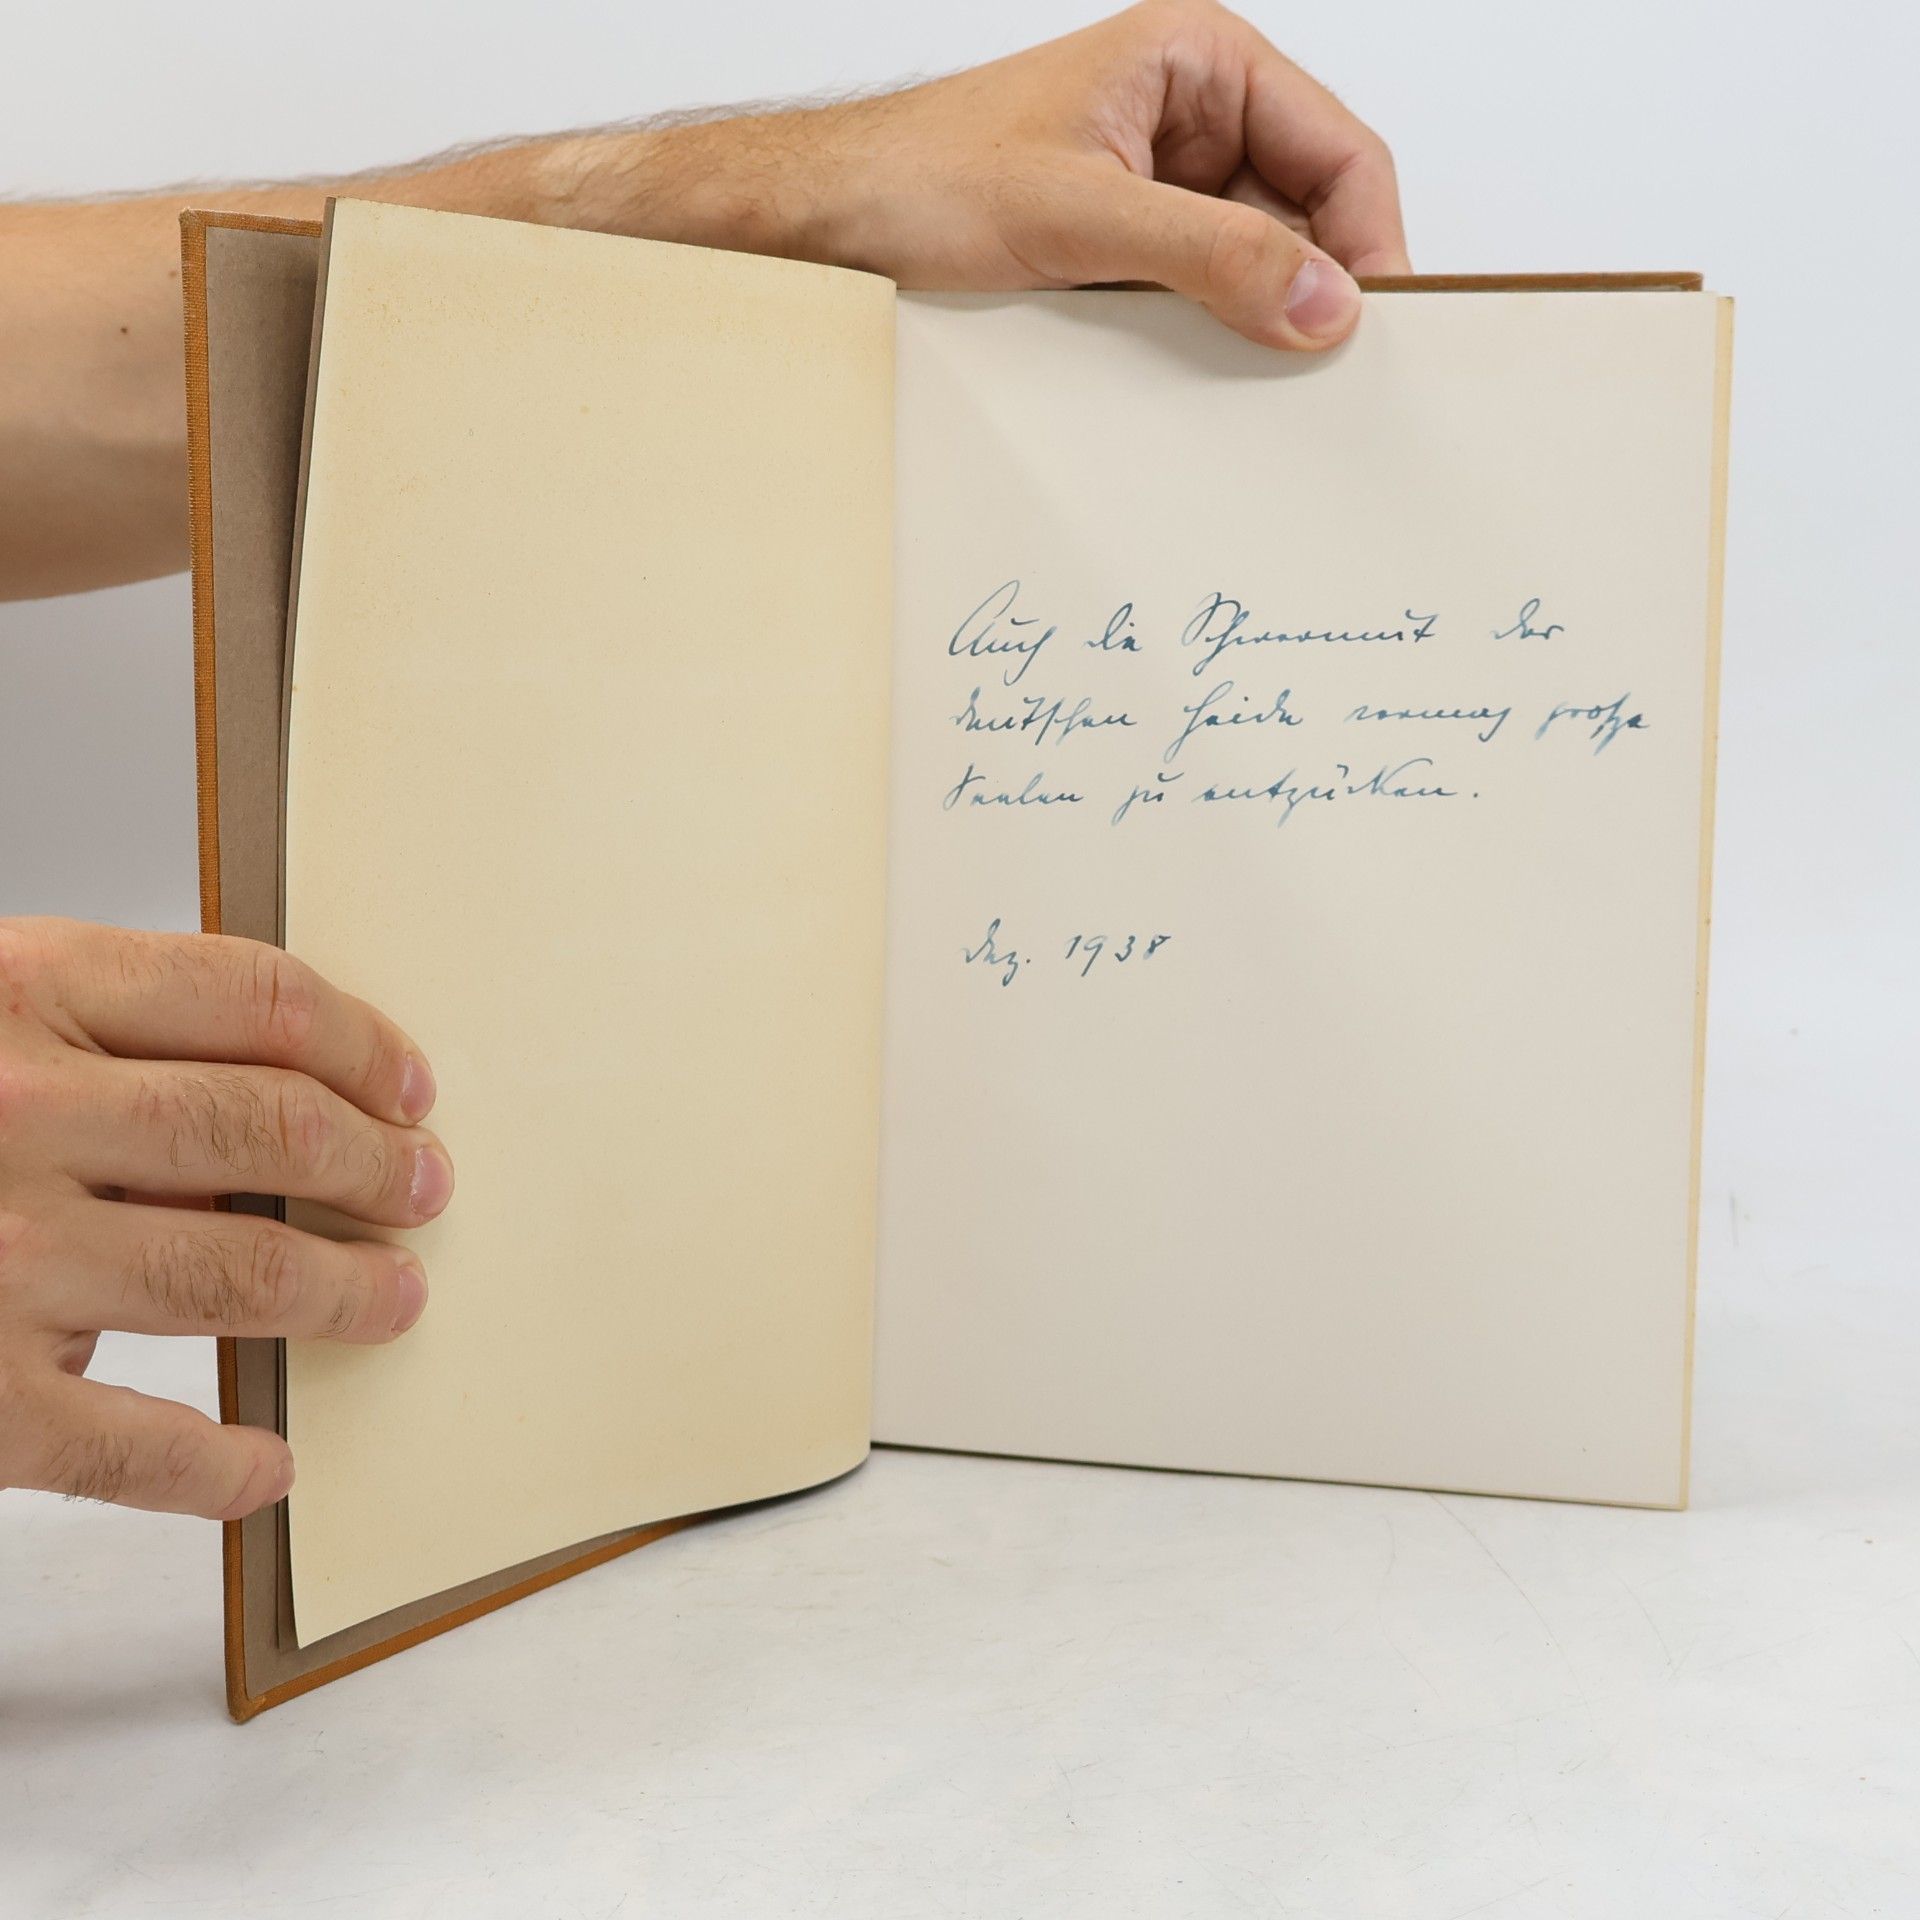 Auch die Schwermut der
deutschen Heide vermag große
Seelen zu entzücken.
Dez. 1938